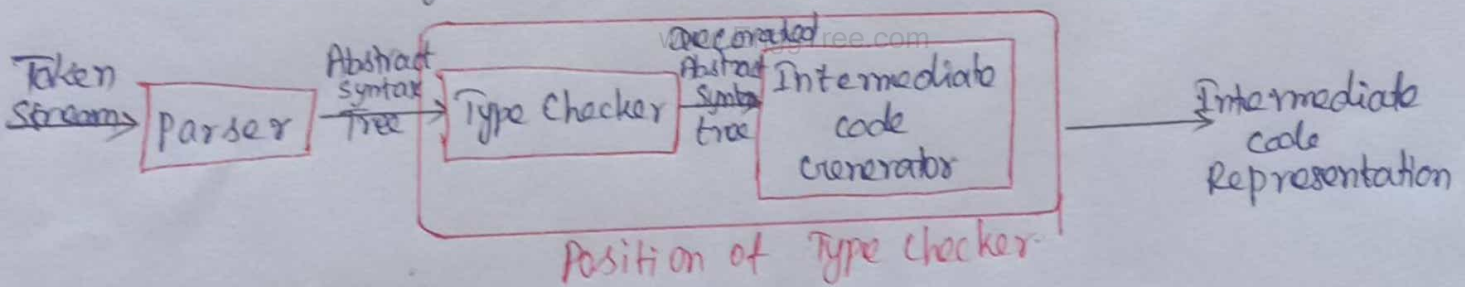 Token
Stream
Parser
Abstract
syntax
Tree
Type Checker
Decorated
Abstract
syntax
tree
Intermediate
code
Generator
Intermediate
code
Representation
Position of Type Checker